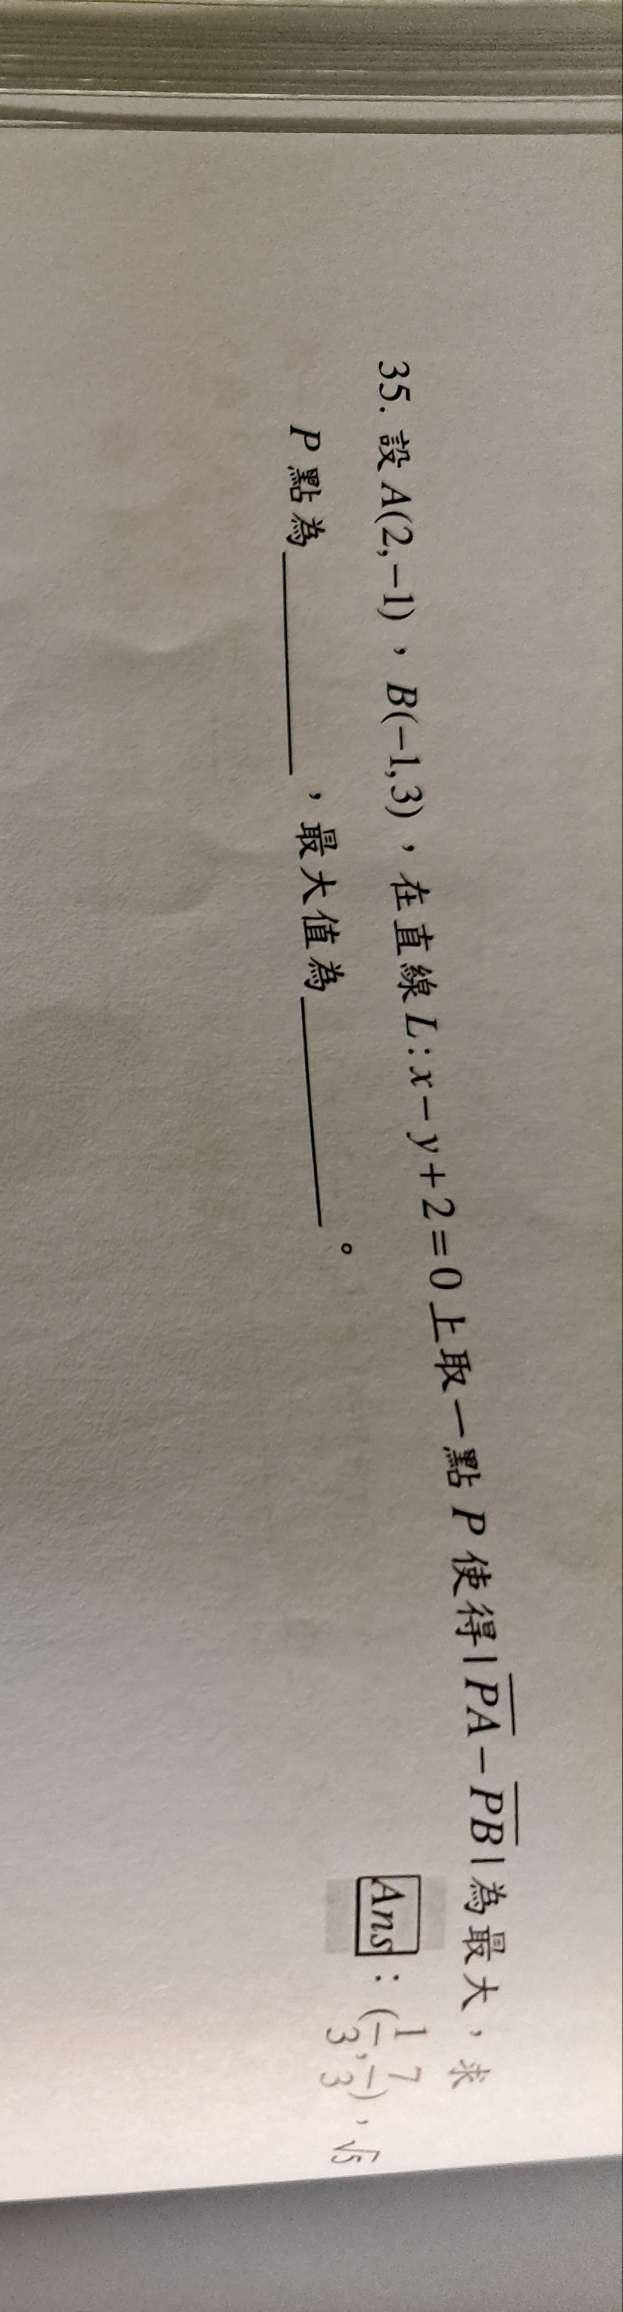 35. 設 A(2,−1)，B(−1,3)，在直線 L:x−y+2=0 上取一點 P 使得|PA−PB|為最大，求
P 點為________，最大值為________。
Ans：(1/3,7/3)，√5